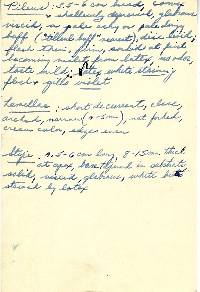 Pileus: 3.5-6 cm broad, convex
+ shallowly depressed, glabrous
viscid, or pale ochry or pale drieg
buff ("tilleul buff" nearest), disc livid,
flesh thin, firm, sordid at first
becoming violet from latex, no odor,
taste mild; latex white staining
flesh + gills violet
Lamellae: short decurrent, close,
arched, narrow (4-5mm), not forked,
cream color, edges even
Stipe: 4.5-6 cm long, 8-15 mm thick
at apex, base
solid, viscid, glabrous, white but
stained by latex